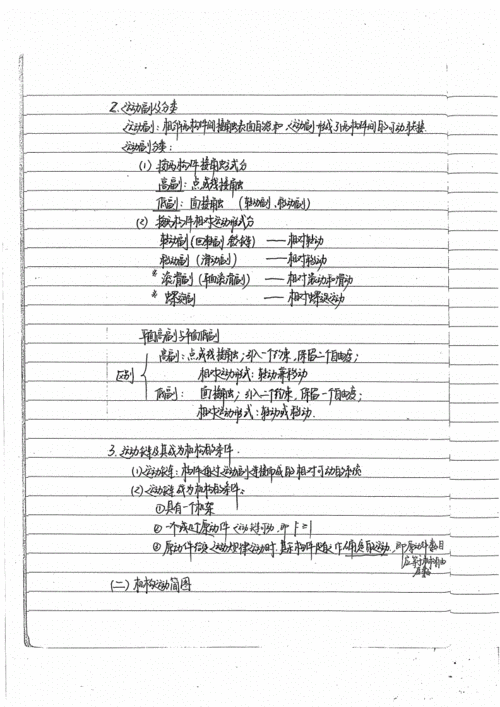 2. 运动副及分类
运动副：相邻两构件间接触表面的总和，运动副形成了两构件间的可动联接.
运动副分类：
(1) 按两构件接触形式分
高副：点或线接触
低副：面接触 (转动副、移动副)
(2) 按两构件相对运动形式分
转动副 (回转副、铰链) —— 相对转动
移动副 (滑动副) —— 相对移动
* 滚滑副 (平面滚滑副) —— 相对滚动和滑动
* 螺旋副 —— 相对螺旋运动
平面高副与平面低副
区别
高副：点或线接触；引入一个约束，保留二个自由度；
相对运动形式：转动兼移动
低副：面接触；引入二个约束，保留一个自由度；
相对运动形式：转动或移动.
3. 运动链及其成为机构的条件.
(1) 运动链：构件通过运动副连接而成的相对可动的系统
(2) 运动链成为机构的条件：
① 具有一个机架
② 一个或几个原动件 运动链可动，即 F≥1
③ 原动件给定运动规律运动时，其它构件能作确定的运动，即原动件数目
应等于机构自由
度数
(二) 机构运动简图